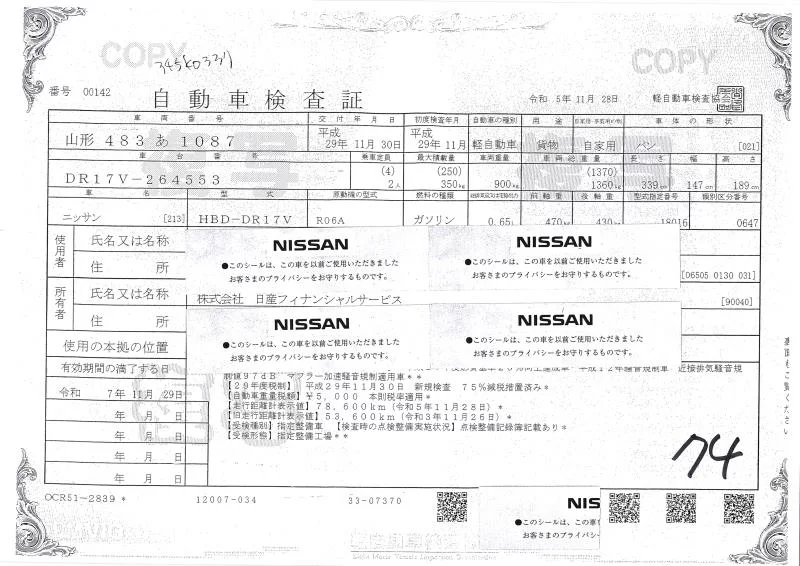 COPY
345k0337
COPY
番号 00142
自動車検査証
令和 5年11月28日 軽自動車検査協会
車両番号 交付年月日 初度検査年月 自動車の種別 用途 自家用・事業用の別 車体の形状
山形 483 あ 1087 平成 29年 11月 30日 平成 29年 11月 軽自動車 貨物 自家用 バン [021]
車台番号 乗車定員 最大積載量 車両重量 車両総重量 長さ 幅 高さ
DR17V-264553 (4) 2人 (250) 350kg 900kg (1370) 1360kg 339cm 147cm 189cm
車名 型式 原動機の型式 燃料の種類 総排気量又は定格出力 前軸重 後軸重 型式指定番号 類別区分番号
ニッサン [213] HBD-DR17V R06A ガソリン 0.65L 470kg 430kg 18016 0647
使用者 氏名又は名称
住所 [06505 0130 031]
所有者 氏名又は名称 株式会社 日産フィナンシャルサービス [90040]
住所
NISSAN
●このシールは、この車を以前ご使用いただきました
お客さまのプライバシーをお守りするものです。
NISSAN
●このシールは、この車を以前ご使用いただきました
お客さまのプライバシーをお守りするものです。
NISSAN
●このシールは、この車を以前ご使用いただきました
お客さまのプライバシーをお守りするものです。
NISSAN
●このシールは、この車を以前ご使用いただきました
お客さまのプライバシーをお守りするものです。
使用の本拠の位置
有効期間の満了する日
令和 7年 11月 29日
年 月 日
年 月 日
年 月 日
年 月 日
制値97dB マフラー加速騒音規制適用車**
【29年度税制】 平成29年11月30日 新規検査 75%減税措置済み*
【自動車重量税額】 ¥5,000 本則税率適用*
【走行距離計表示値】 78,600km (令和5年11月28日)*
【旧走行距離計表示値】 53,600km (令和3年11月26日)*
【受検種別】指定整備車 【検査時の点検整備実施状況】点検整備記録簿記載あり*
【受検形態】指定整備工場**
裏面もご覧ください
74
OCR51-2839 * 12007-034 33-07370
NIS
●このシールは、この車を以前ご使
お客さまのプライバシー